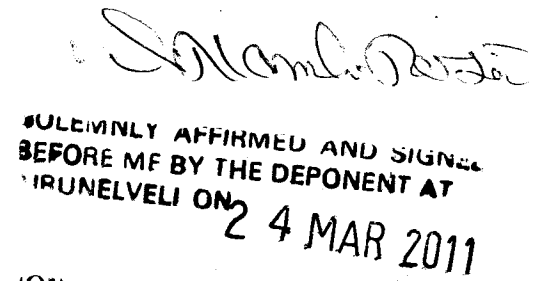 SOLEMNLY AFFIRMED AND SIGNED
BEFORE ME BY THE DEPONENT AT
TIRUNELVELI ON
24 MAR 2011